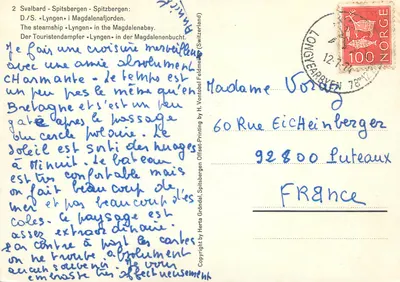 2 Svalbard - Spitsbergen - Spitzbergen:
D/S. «Lyngen» i Magdalenafjorden.
The steamship «Lyngen» in the Magdalenabay.
Der Touristendampfer «Lyngen» in der Magdalenenbucht.
Annick
Je fais une croisière merveilleuse
avec une amie absolument
CHarmante. Le temps est
un peu pas le même qu'en
Bretagne et s'est un peu
gaté après le passage
du cercle polaire. Le
soleil est sorti des nuages
à Minuit. Le bateau
est très confortable mais
on fait beaucoup de
mer et pas beaucoup d'es
cales. Le paysage est
assez extraordinaire.
Par contre à part les cartes
on ne trouve absolument
aucun souvenir. Je vous
embrasse très affectueusement
Copyright by Herta Grøndal, Spitsbergen Offset-Printing by H. Vontobel Feldmeilen (Switzerland)
LONGYEARBYEN
12-7-
NORGE
100
Madame Voray
60 Rue EicHeinberger
92800 Puteaux
FRANCE